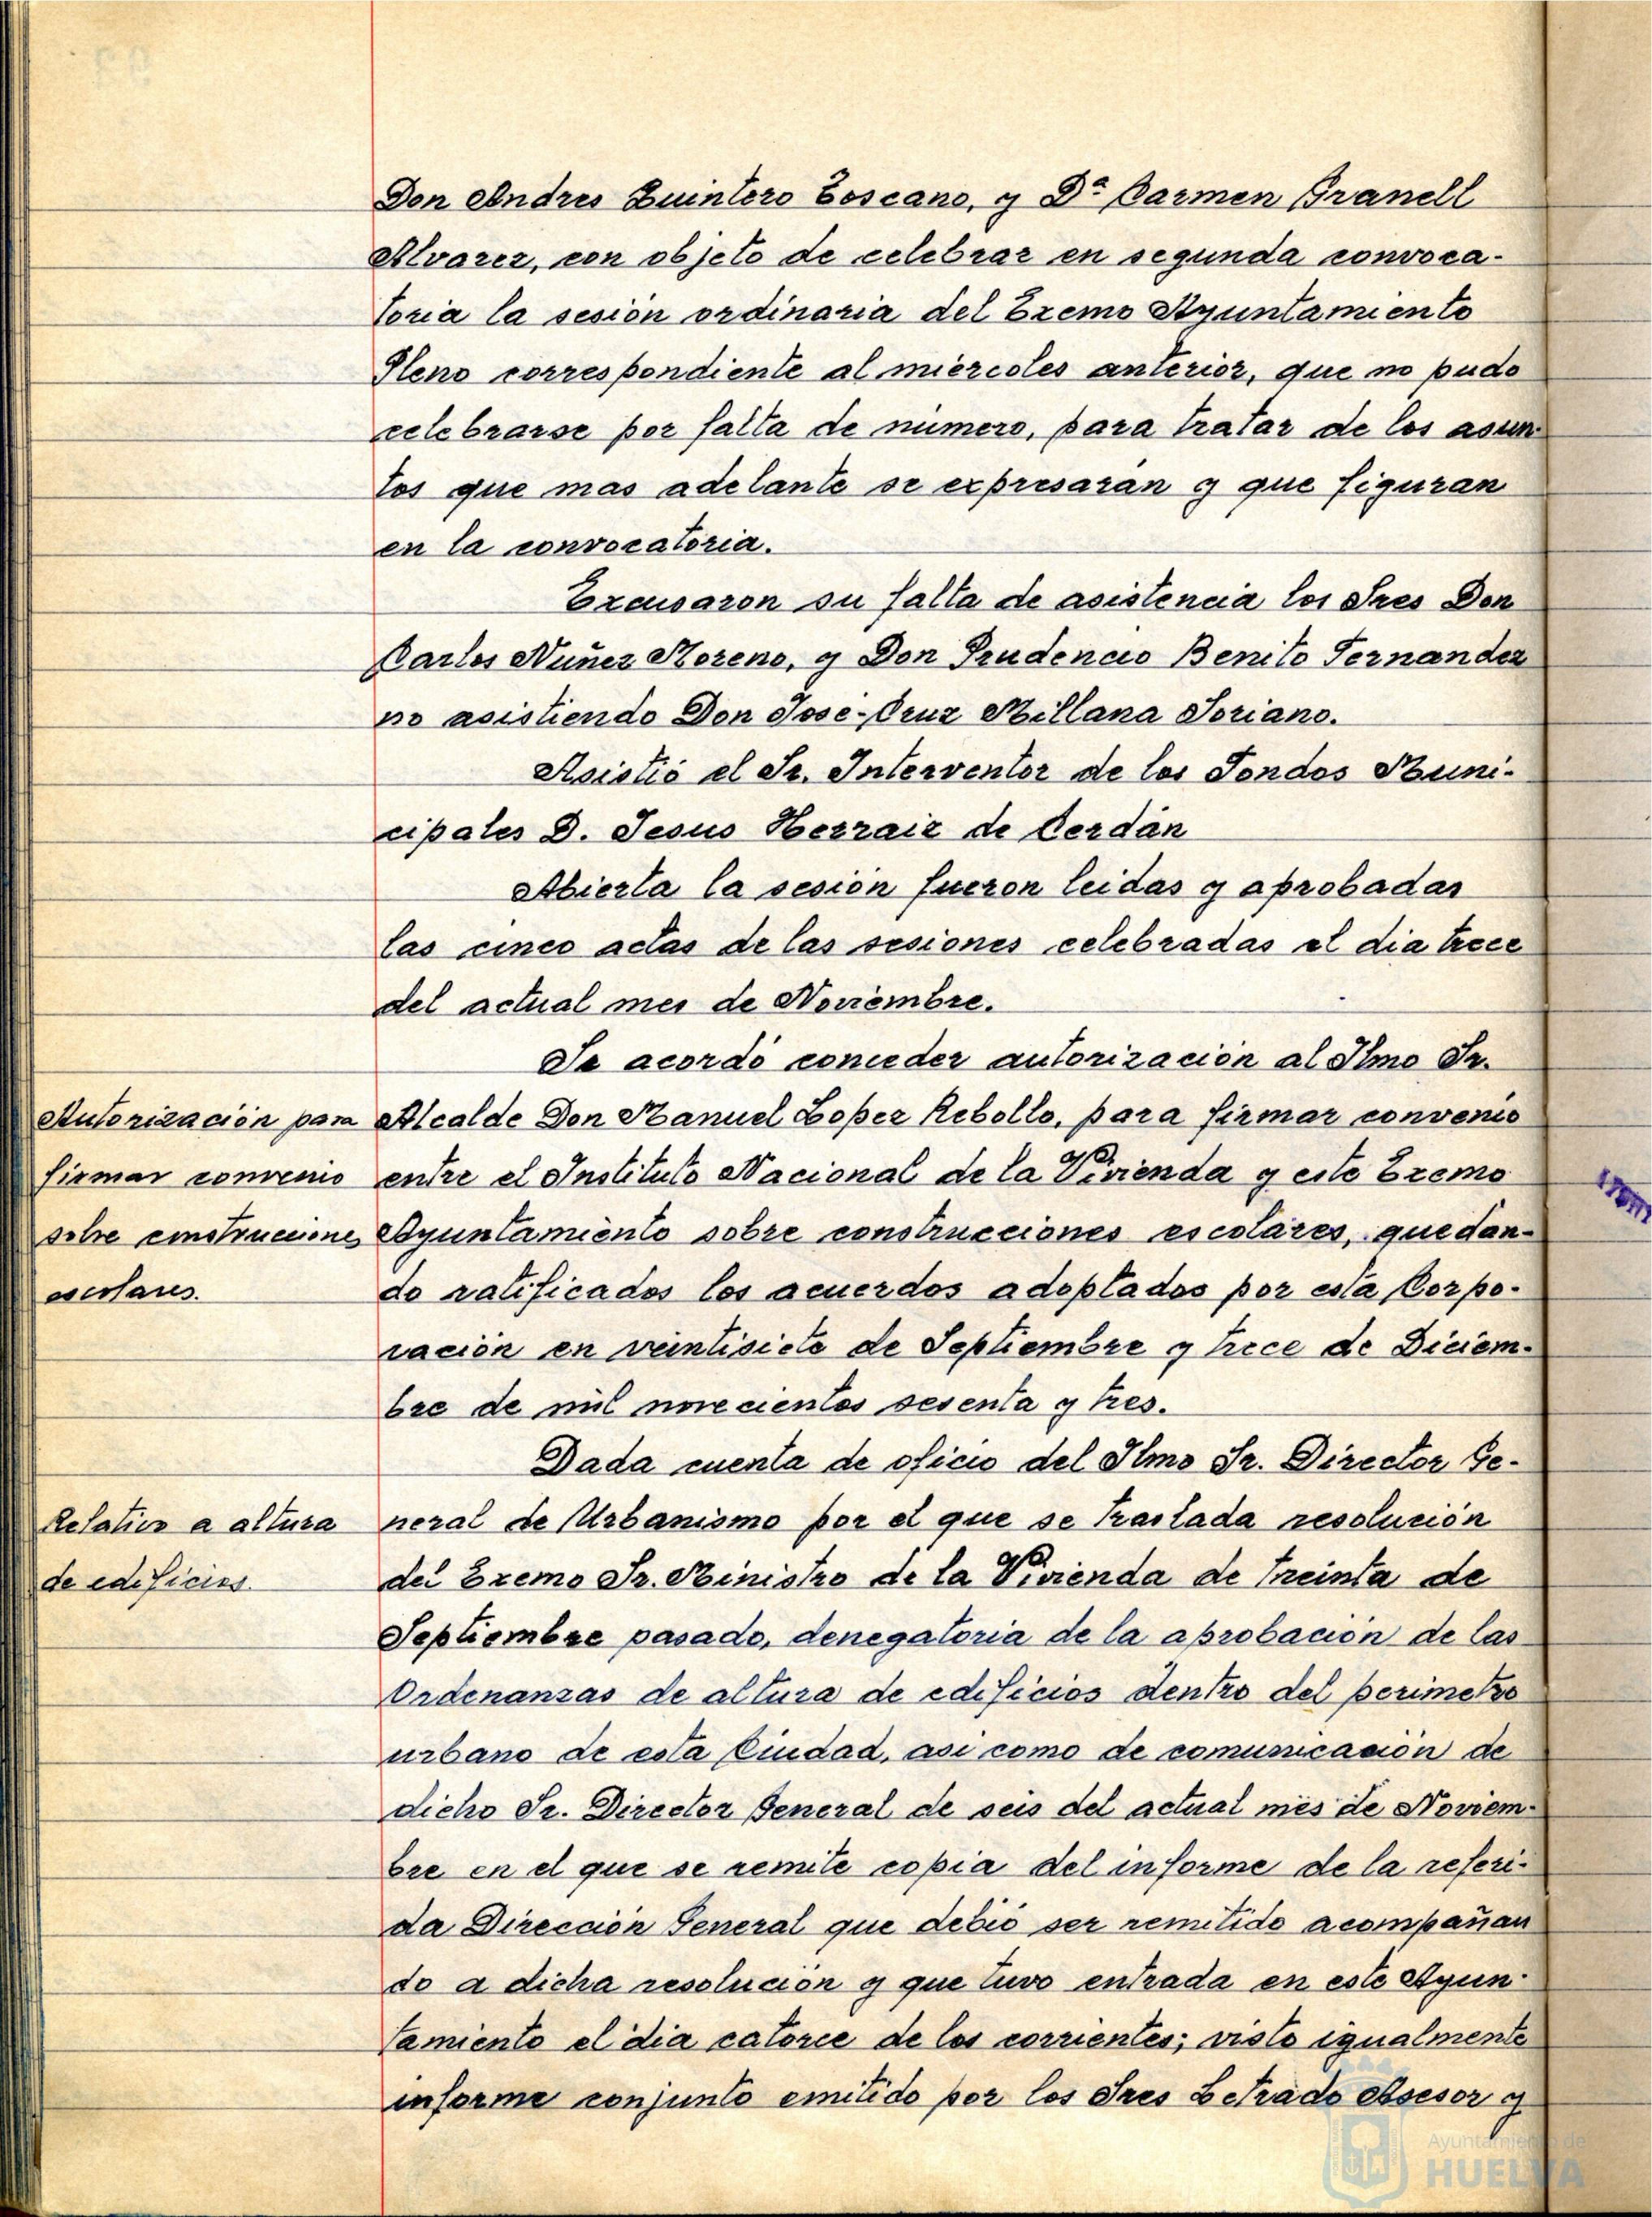 Don Andres Quintero Toscano, y Dª Carmen Granell
Alvarez, con objeto de celebrar en segunda convoca-
toria la sesión ordinaria del Excmo Ayuntamiento
Pleno correspondiente al miércoles anterior, que no pudo
celebrarse por falta de número, para tratar de los asun-
tos que mas adelante se expresaran y que figuran
en la convocatoria.
Excusaron su falta de asistencia los Sres Don
Carlos Nuñez Moreno, y Don Prudencio Benito Fernandez
no asistiendo Don Jose-Cruz Millana Soriano.
Asistió el Sr. Interventor de los Fondos Muni-
cipales D. Jesus Herraiz de Cerdán
Abierta la sesión fueron leidas y aprobadas
las cinco actas de las sesiones celebradas el dia trece
del actual mes de Noviembre.
Se acordó conceder autorización al Ilmo Sr.
Autorización para
firmar convenio
sobre construcciones
escolares.
Alcalde Don Manuel Lopez Rebollo, para firmar convenio
entre el Instituto Nacional de la Vivienda y este Excmo
Ayuntamiento sobre construcciones escolares, quedan-
do ratificados los acuerdos adoptados por esta Corpo-
ración en veintisiete de Septiembre y trece de Diciem-
bre de mil novecientos sesenta y tres.
Dada cuenta de oficio del Ilmo Sr. Director Ge-
Relativo a altura
de edificios.
neral de Urbanismo por el que se traslada resolución
del Excmo Sr. Ministro de la Vivienda de treinta de
Septiembre pasado, denegatoria de la aprobación de las
Ordenanzas de altura de edificios dentro del perimetro
urbano de esta Ciudad, asi como de comunicación de
dicho Sr. Director General de seis del actual mes de Noviem-
bre en el que se remite copia del informe de la referi-
da Dirección General que debió ser remitido acompañan
do a dicha resolución y que tuvo entrada en este Ayun-
tamiento el dia catorce de los corrientes; visto igualmente
informe conjunto emitido por los Sres Letrado Asesor y
Ayuntamiento de
HUELVA